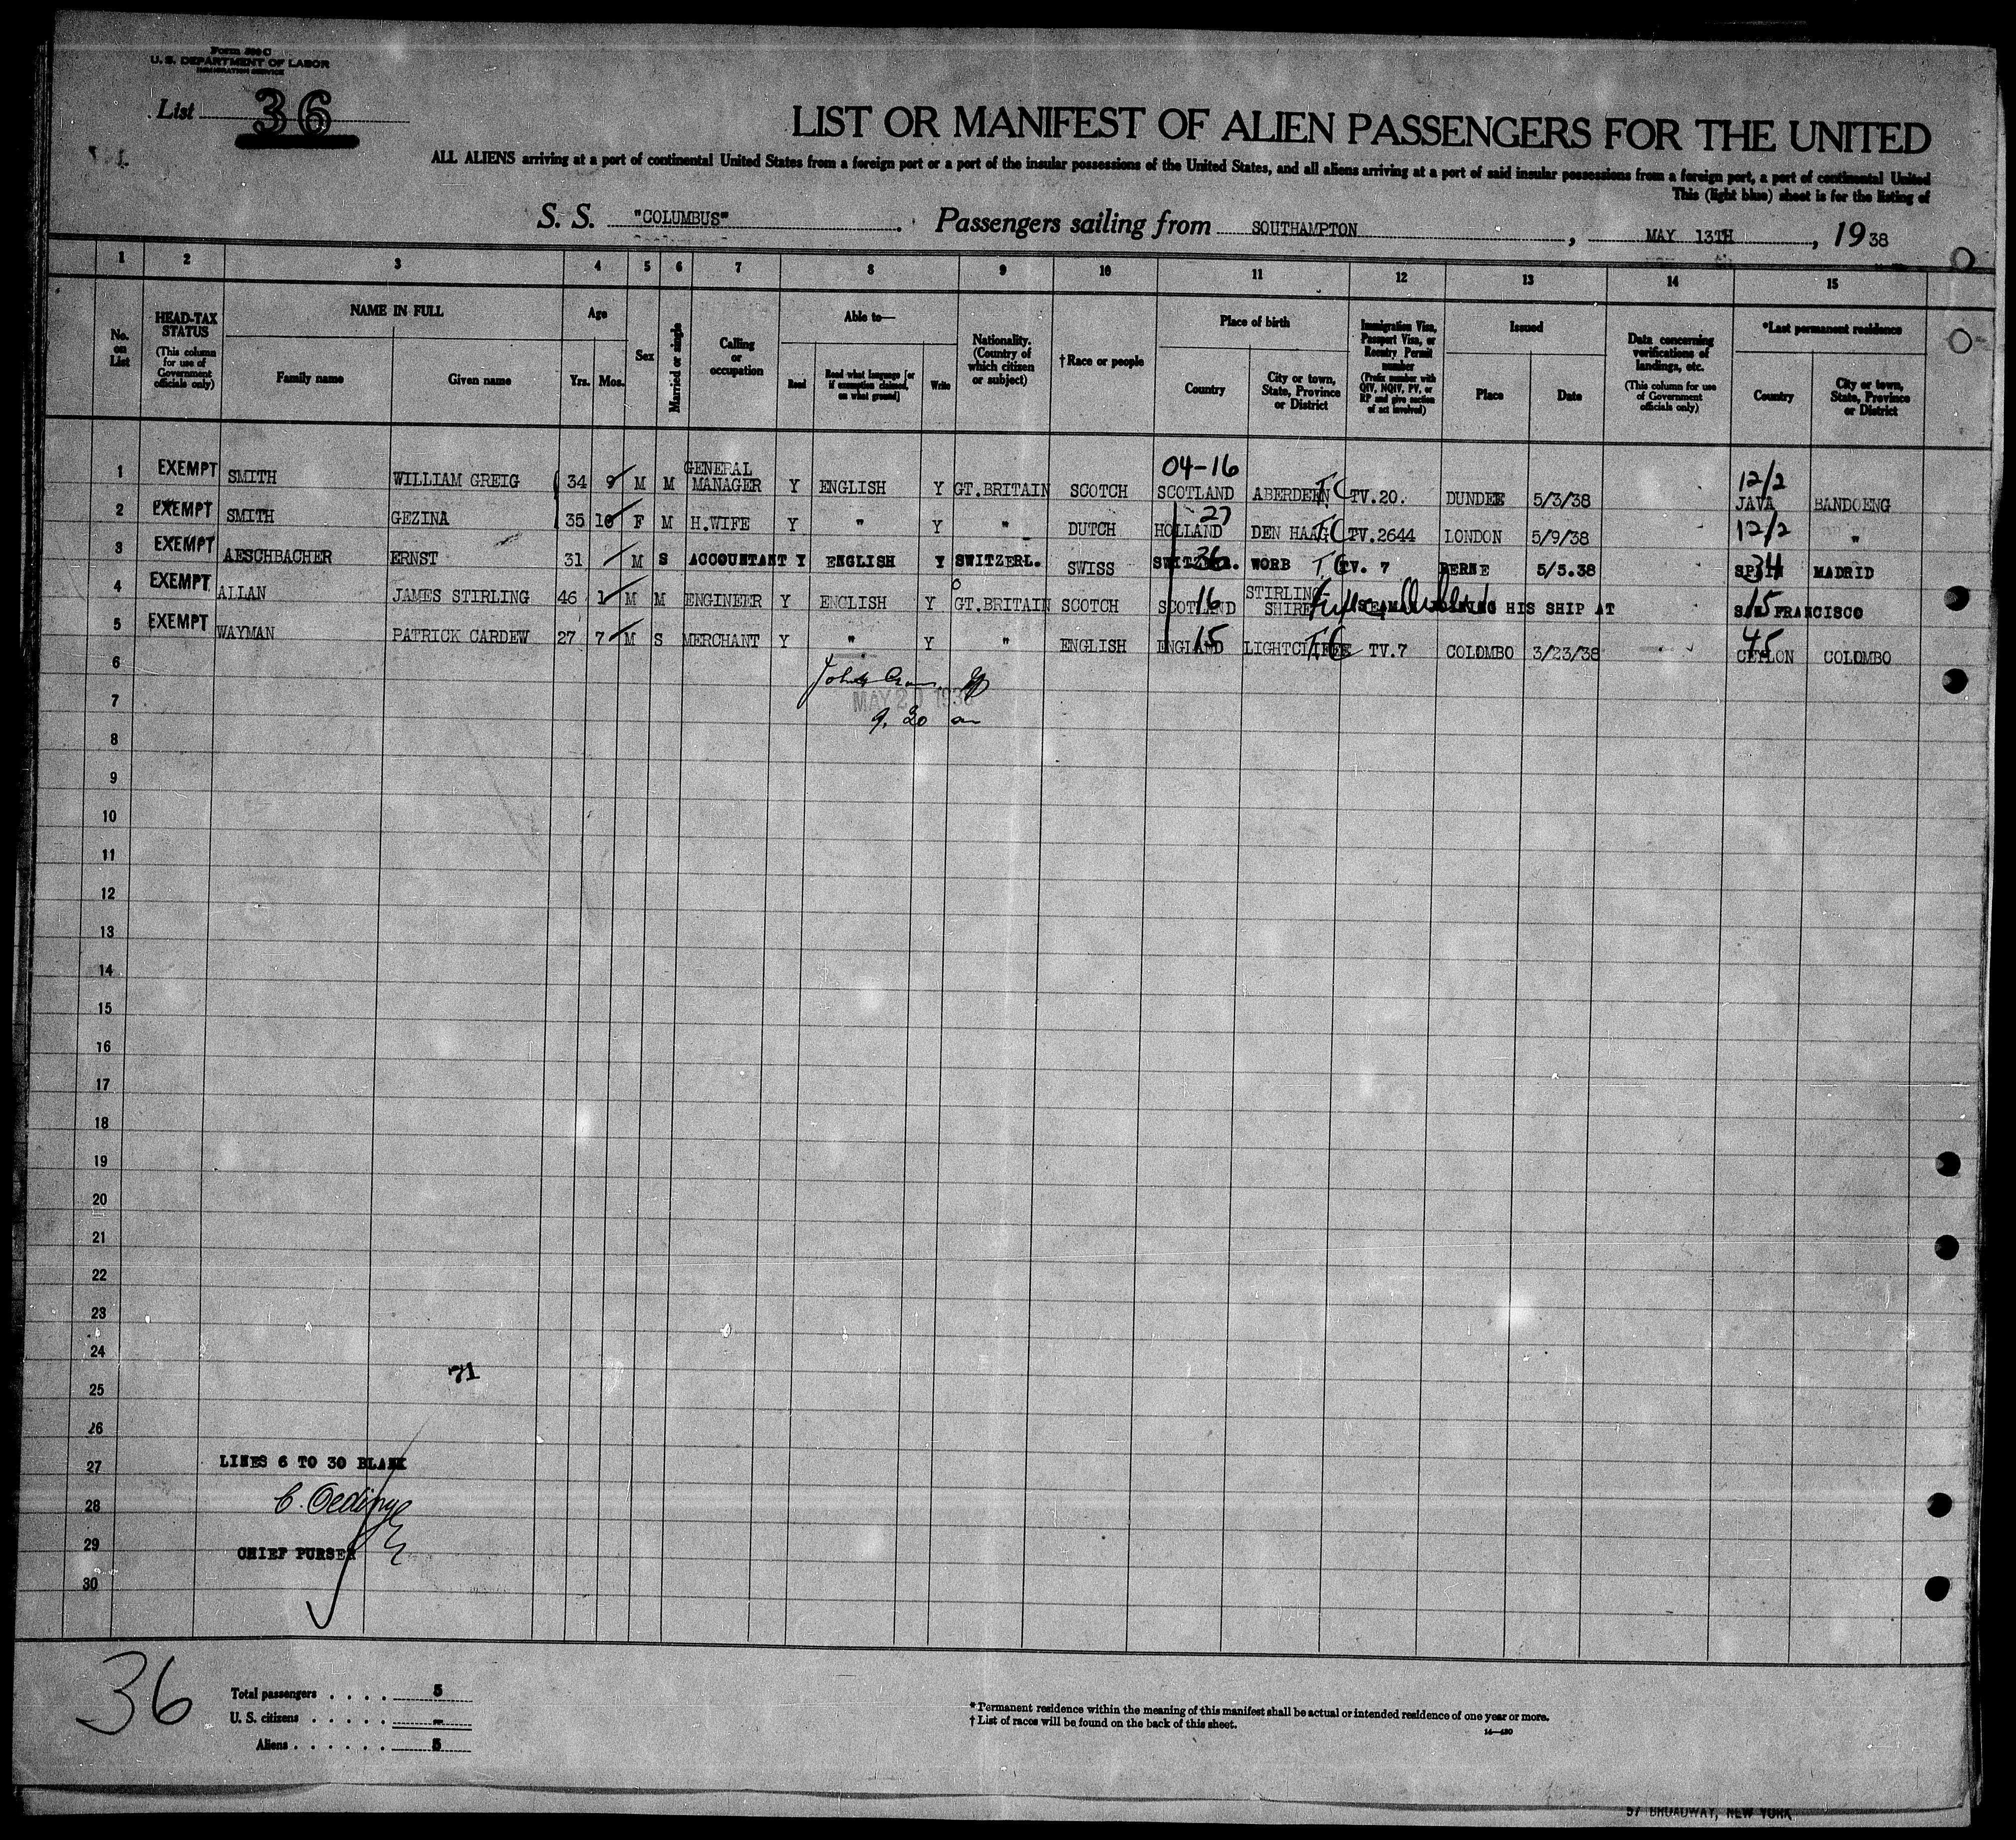 Form 500 C
U. S. DEPARTMENT OF LABOR
IMMIGRATION SERVICE
List 36
LIST OR MANIFEST OF ALIEN PASSENGERS FOR THE UNITED
ALL ALIENS arriving at a port of continental United States from a foreign port or a port of the insular possessions of the United States, and all aliens arriving at a port of said insular possessions from a foreign port, a port of continental United
This (light blue) sheet is for the listing of
S. S. "COLUMBUS" . Passengers sailing from SOUTHAMPTON , MAY 13TH , 1938
1 2 3 4 5 6 7 8 9 10 11 12 13 14 15
No. on List
HEAD-TAX STATUS (This column for use of Government officials only)
NAME IN FULL
Family name
Given name
Age
Yrs. Mos.
Sex
Married or single
Calling or occupation
Able to—
Read
Read what language [or if exemption claimed, on what ground]
Write
Nationality. (Country of which citizen or subject)
†Race or people
Place of birth
Country
City or town, State, Province or District
Immigration Visa, Passport Visa, or Reentry Permit number (Prefix number with QIV, NQIV, PV, or RP and give section of act involved)
Issued
Place
Date
Data concerning verifications of landings, etc. (This column for use of Government officials only)
*Last permanent residence
Country
City or town, State, Province or District
04-16 12/2
1 EXEMPT SMITH WILLIAM GREIG 34 9 M M GENERAL MANAGER Y ENGLISH Y GT.BRITAIN SCOTCH SCOTLAND ABERDEEN TC TV.20. DUNDEE 5/3/38 JAVA BANDOENG
27 12/2
2 EXEMPT SMITH GEZINA 35 10 F M H.WIFE Y " Y " DUTCH HOLLAND DEN HAAG TC TV.2644 LONDON 5/9/38 "
3 EXEMPT AESCHBACHER ERNST 31 M S ACCOUNTANT Y ENGLISH Y SWITZERL. SWISS SWITZERL. 36 WORB TC TV. 7 BERNE 5/5.38 SPAIN 34 MADRID
4 EXEMPT ALLAN JAMES STIRLING 46 1 M M ENGINEER Y ENGLISH Y GT.BRITAIN SCOTCH SCOTLAND 16 STIRLING SHIRE HIS SHIP AT SAN FRANCISCO 15
5 EXEMPT WAYMAN PATRICK CARDEW 27 7 M S MERCHANT Y " Y " ENGLISH ENGLAND 15 LIGHTCLIFFE TC TV.7 COLOMBO 3/23/38 CEYLON 45 COLOMBO
6
MAY 2 193
7
9.20 am
8
9
10
11
12
13
14
15
16
17
18
19
20
21
22
23
24
71
25
26
27 LINES 6 TO 30 BLANK
28 C. Oeding
29 CHIEF PURSER
30
36
Total passengers . . . . 5
U. S. citizens . . . . . –
Aliens . . . . . . 5
* Permanent residence within the meaning of this manifest shall be actual or intended residence of one year or more.
† List of races will be found on the back of this sheet.
57 BROADWAY, NEW YORK